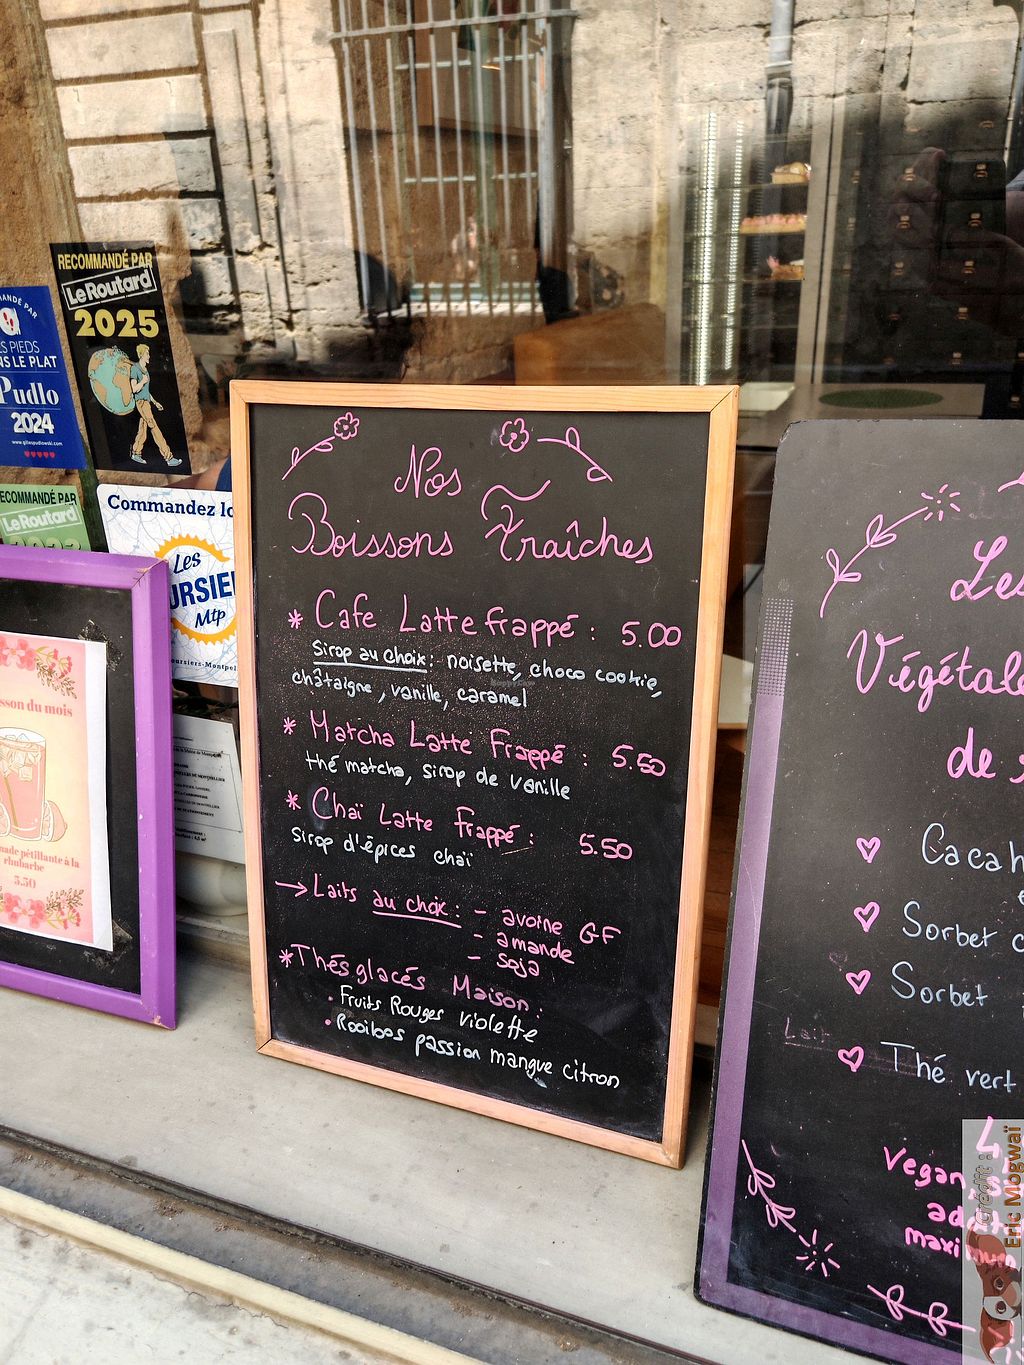 RECOMMANDÉ PAR
Le Routard
2025
MANDÉ PAR
S PIEDS
NS LE PLAT
Pudlo
2024
www.gillespudlowski.com
RECOMMANDÉ PAR
Le Routard
Commandez lo
Les
URSIE
Mtp
oursiers-Montpel
sson du mois
nade pétillante à la
rhubarbe
5.50
Nos
Boissons Fraîches
* Cafe Latte frappé : 5.00
Sirop au choix : noisette, choco cookie,
châtaigne, vanille, caramel
* Matcha Latte Frappé : 5.50
thé matcha, sirop de vanille
* Chaï Latte Frappé : 5.50
sirop d'épices chaï
→ Laits au choix : - avoine GF
- amande
- soja
* Thés glacés Maison :
• Fruits Rouges violette
• Rooibos passion mangue citron
Les
Végétale
de
Cacah
Sorbet
Sorbet
Lait
Thé vert
Vegan
maximum
Crédit :
Eric Mogwaï